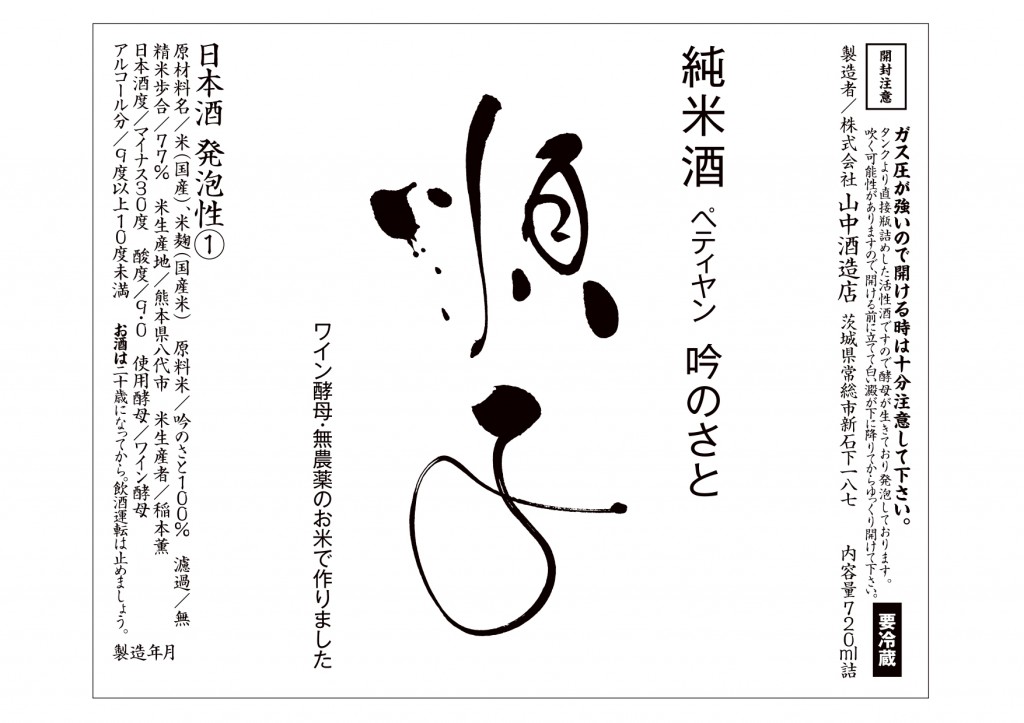 開封注意
ガス圧が強いので開ける時は十分注意して下さい。
タンクより直接瓶詰めした活性酒ですので酵母が生きており発泡しております。
吹く可能性がありますので、開ける前に立てて白い澱が下に降りてからゆっくり開けて下さい。
要冷蔵
製造者/株式会社 山中酒造店 茨城県常総市新石下一八七 内容量720ml詰
純米酒 ペティヤン 吟のさと
順子
ワイン酵母・無農薬のお米で作りました
日本酒 発泡性①
原材料名/米(国産)、米麹(国産米) 原料米/吟のさと100% 濾過/無
精米歩合/77% 米生産地/熊本県八代市 米生産者/稲本薫
日本酒度/マイナス30度 酸度/9.0 使用酵母/ワイン酵母
アルコール分/9度以上10度未満 お酒は二十歳になってから。飲酒運転は止めましょう。
製造年月